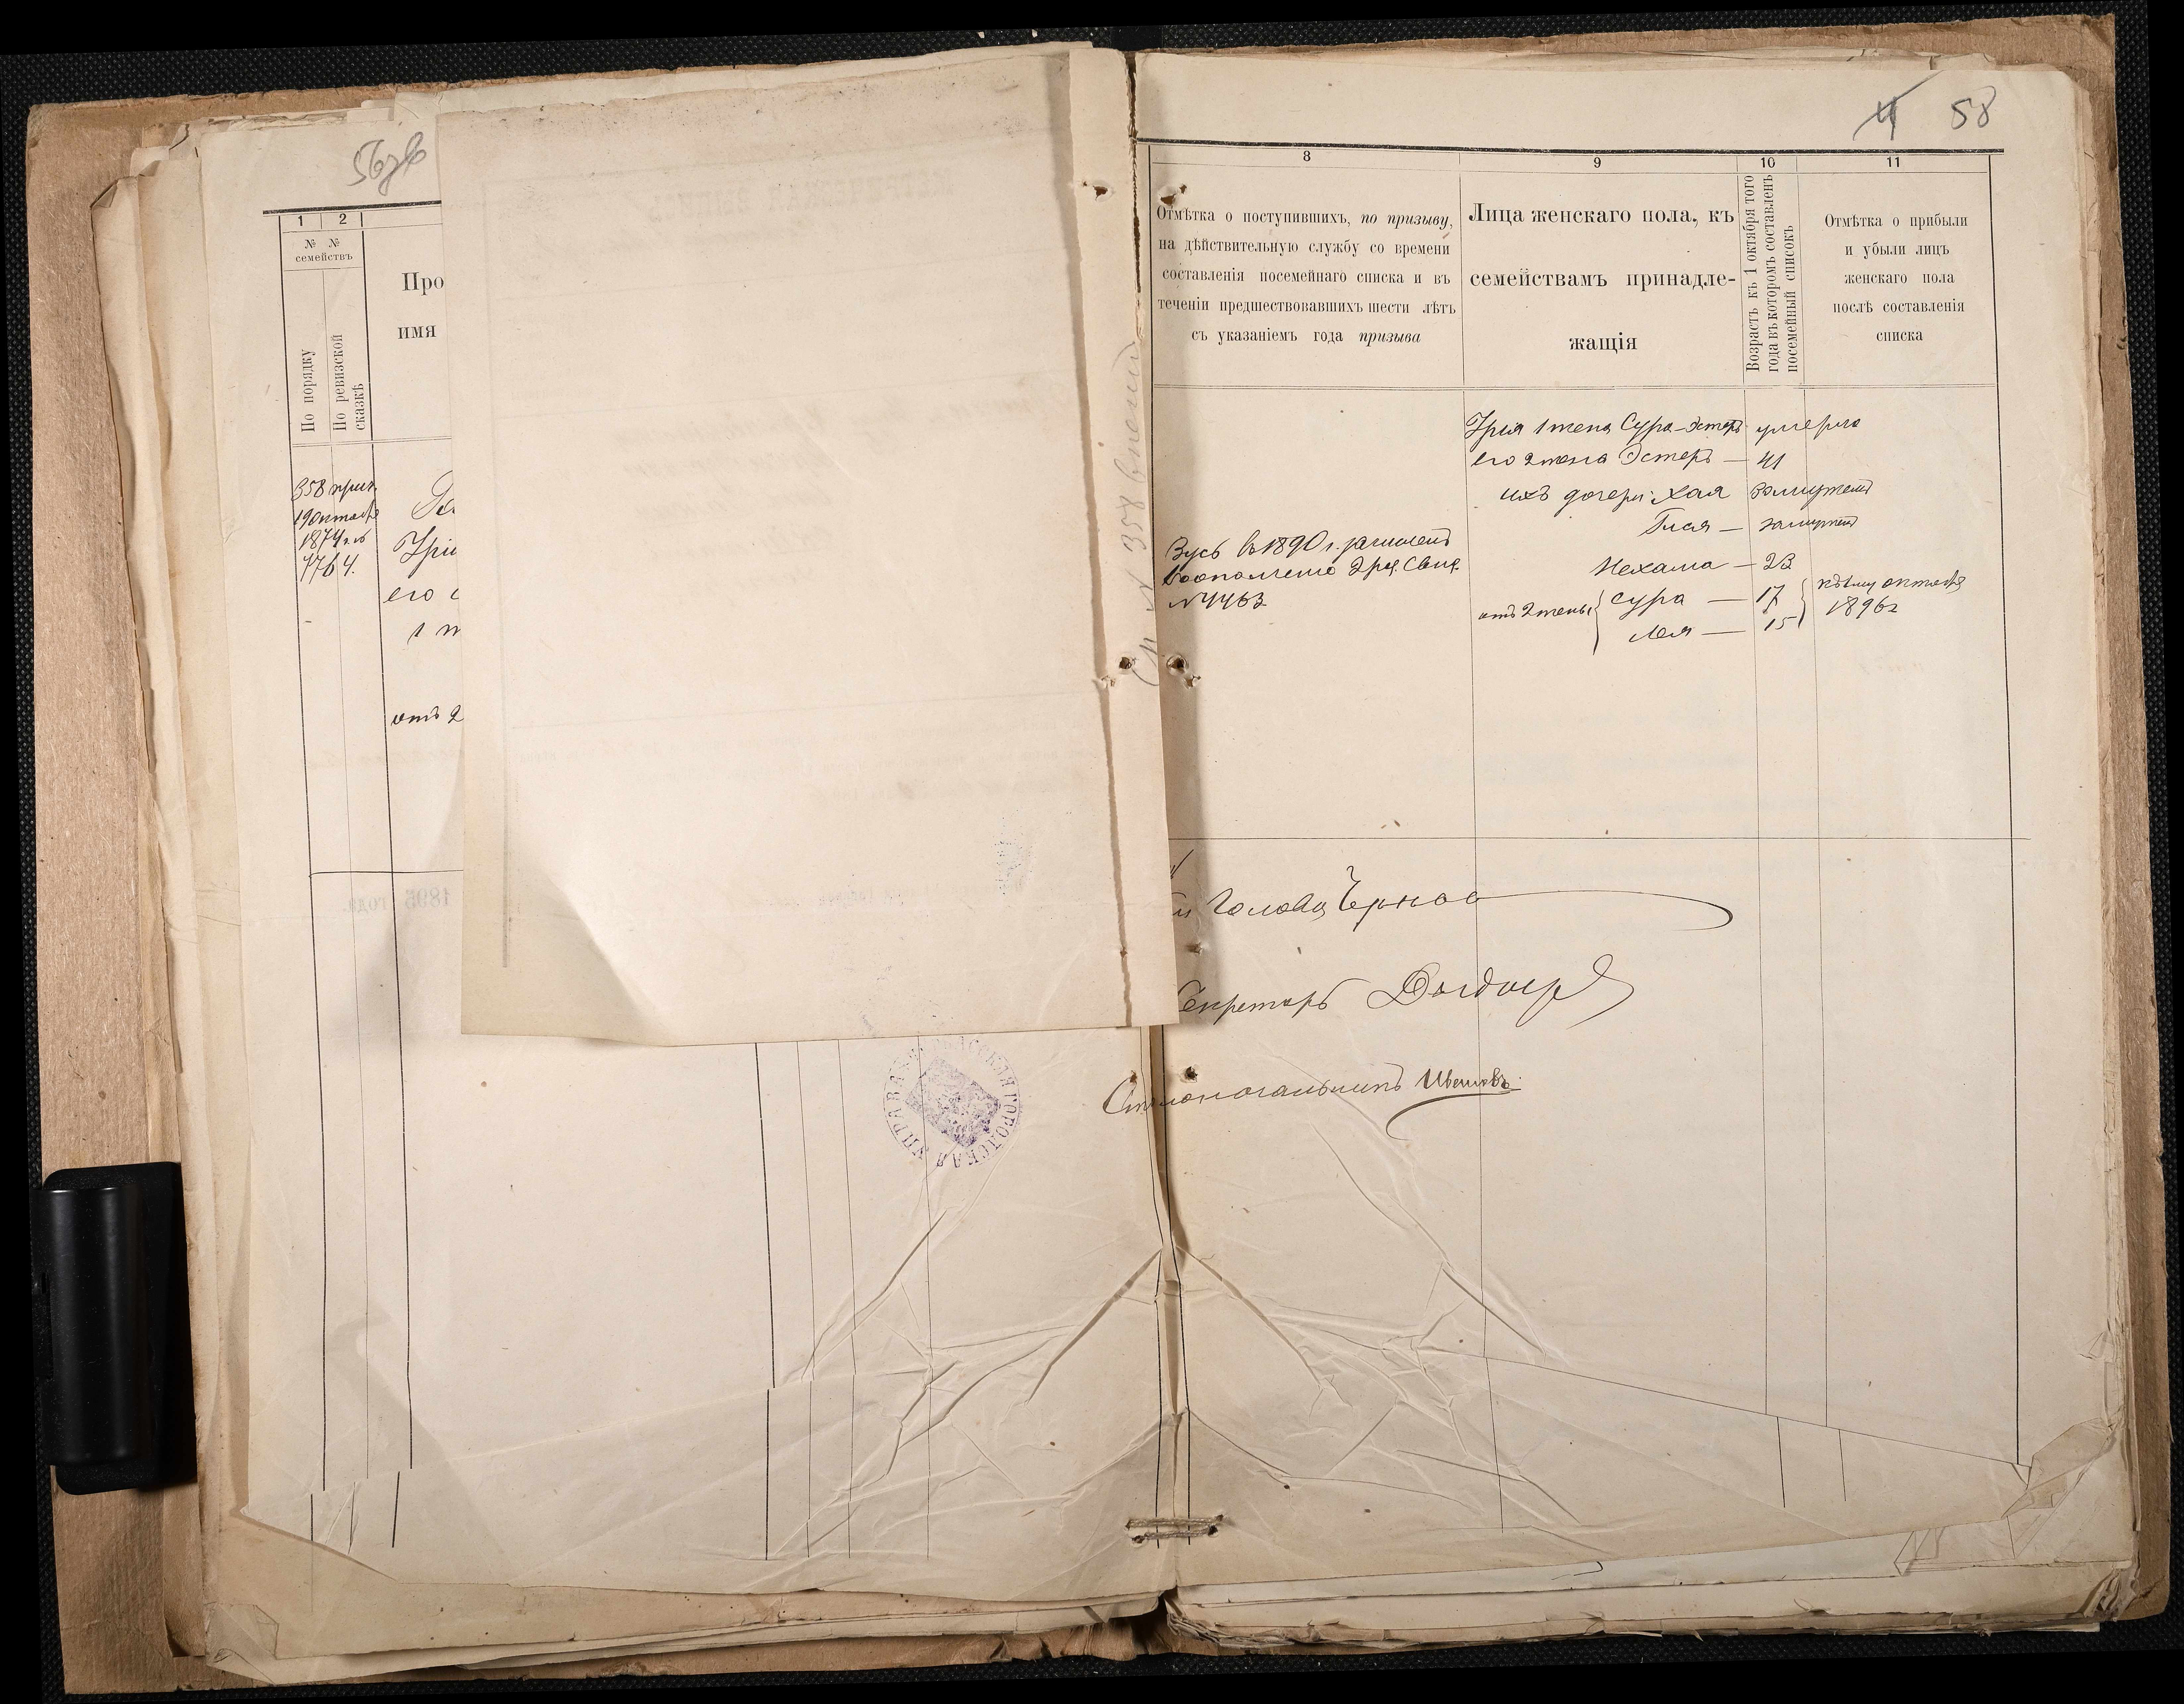 56об
1 2
№ №
семействъ
По порядку
По ревизской
сказкѣ
Про
имя
358 приг.
19 октября
1874 г. №
4764.
Урі
его с
1 ж
отъ 2
№ 358 внесенъ
УПРАВА ГОРОДСКАЯ
4 58
8 9 10 11
Отмѣтка о поступившихъ, по призыву,
на дѣйствительную службу со времени
составленія посемейнаго списка и въ
теченіи предшествовавшихъ шести лѣтъ
съ указаніемъ года призыва
Лица женскаго пола, къ
семействамъ принадле-
жащія
Возрастъ къ 1 октября того
года въ которомъ составленъ
посемейный списокъ
Отмѣтка о прибыли
и убыли лицъ
женскаго пола
послѣ составленія
списка
Зусь въ 1890 г. зачисленъ
въ ополченіе 2 рзр. Свид.
№ 4463
Урія 1 жена Сура-Эстеръ умерла
его 2 жена Эстеръ — 41
ихъ дочери: Хая замужемъ
Тися — замужем
Нехама — 23
отъ 2 жены Сура — 17
Лея — 15
къ 1му октября
1896 г
Голова Чернов
Секретарь
Столоначальникъ Ивановъ